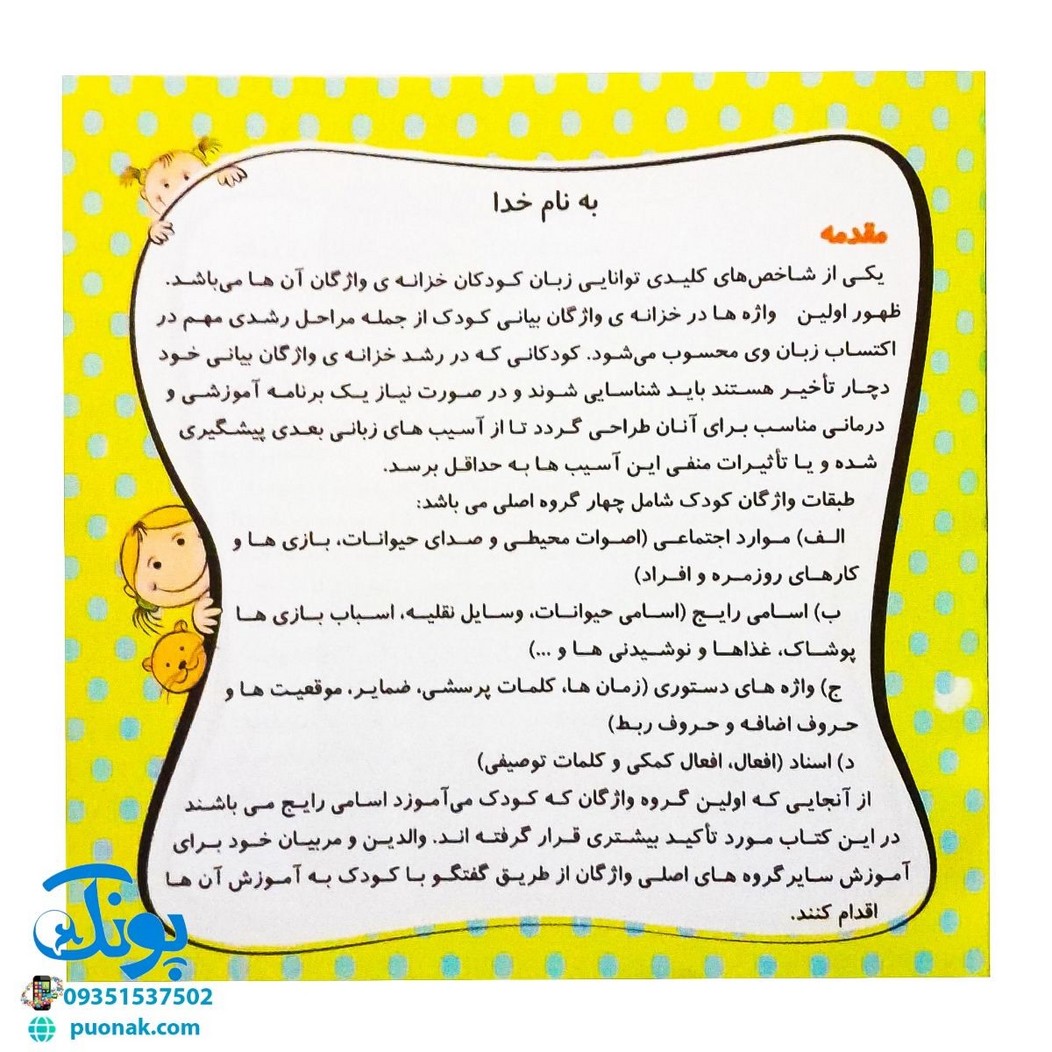 به نام خدا
مقدمه
یکی از شاخص‌های کلیدی توانایی زبان کودکان خزانه ی واژگان آن ها می‌باشد.
ظهور اولین واژه ها در خزانه ی واژگان بیانی کودک از جمله مراحل رشدی مهم در
اکتساب زبان وی محسوب می‌شود. کودکانی که در رشد خزانه ی واژگان بیانی خود
دچار تأخیر هستند باید شناسایی شوند و در صورت نیاز یک برنامه آموزشی و
درمانی مناسب برای آنان طراحی گردد تا از آسیب های زبانی بعدی پیشگیری
شده و یا تأثیرات منفی این آسیب ها به حداقل برسد.
طبقات واژگان کودک شامل چهار گروه اصلی می باشد:
الف) موارد اجتماعی (اصوات محیطی و صدای حیوانات، بازی ها و
کارهای روزمره و افراد)
ب) اسامی رایج (اسامی حیوانات، وسایل نقلیه، اسباب بازی ها
پوشاک، غذاها و نوشیدنی ها و ...)
ج) واژه های دستوری (زمان ها، کلمات پرسشی، ضمایر، موقعیت ها و
حروف اضافه و حروف ربط)
د) اسناد (افعال، افعال کمکی و کلمات توصیفی)
از آنجایی که اولین گروه واژگان که کودک می‌آموزد اسامی رایج می باشند
در این کتاب مورد تأکید بیشتری قرار گرفته اند. والدین و مربیان خود برای
آموزش سایر گروه های اصلی واژگان از طریق گفتگو با کودک به آموزش آن ها
اقدام کنند.
پونک
09351537502
puonak.com